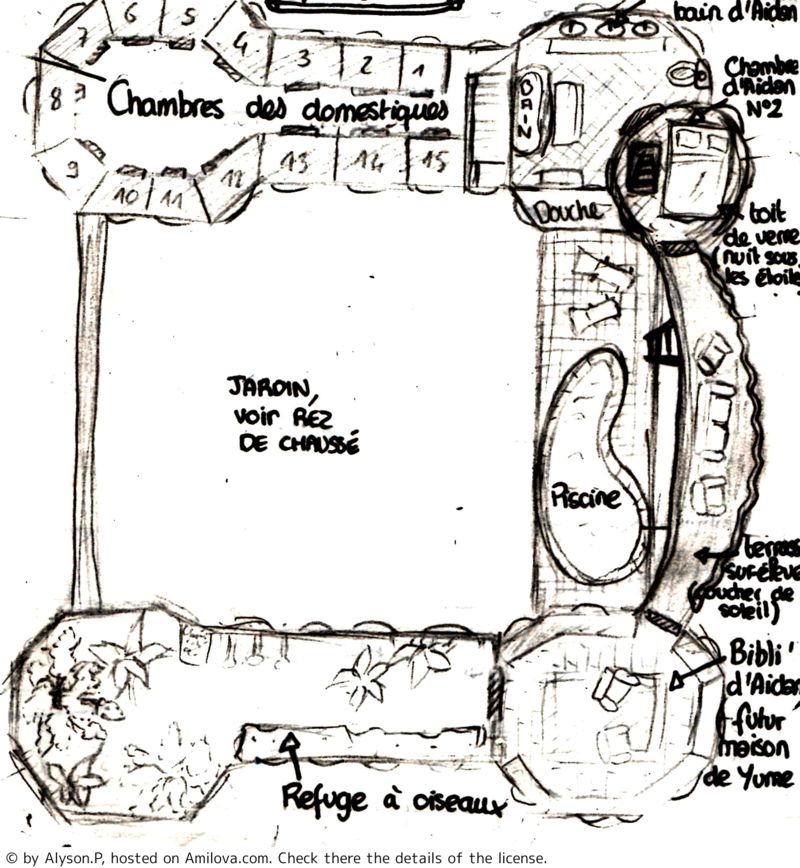 bain d'Aidan
6
5
7
4
3
2
1
8
Chambres des domestiques
Chambre
d'Aidan
N°2
BAIN
9
10
11
12
13
14
15
Douche
toit
de verre
(nuit sous
les étoile
JARDIN,
voir REZ
DE CHAUSSÉ
Piscine
terrass
sur-élevé
(coucher de
soleil)
Bibli'
d'Aidan
(futur
maison
de Yume
Refuge à oiseaux
© by Alyson.P, hosted on Amilova.com. Check there the details of the license.